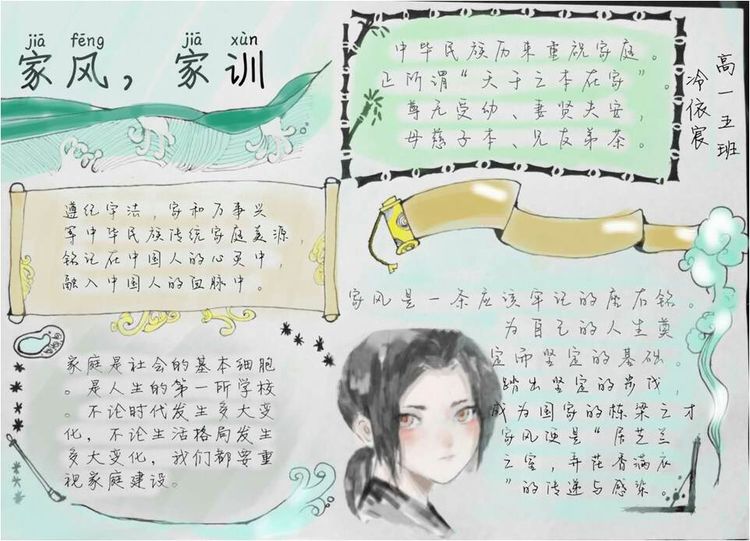 jiā fēng jiā xùn
家风，家训
中华民族历来重视家庭。
正所谓“天下之本在家”。
尊老爱幼、妻贤夫安，
母慈子孝、兄友弟恭。
高一五班
冷依宸
遵纪守法，家和万事兴
等中华民族传统家庭美源，
铭记在中国人的心灵中，
融入中国人的血脉中。
家风是一条应该牢记的座右铭。
为自己的人生奠
定而坚定的基础。
踏出坚定的步伐，
成为国家的栋梁之才
家风便是“居芝兰
之室，弄花香满衣
”的传递与感染。
家庭是社会的基本细胞
。是人生的第一所学校
。不论时代发生多大变
化，不论生活格局发生
多大变化，我们都要重
视家庭建设。